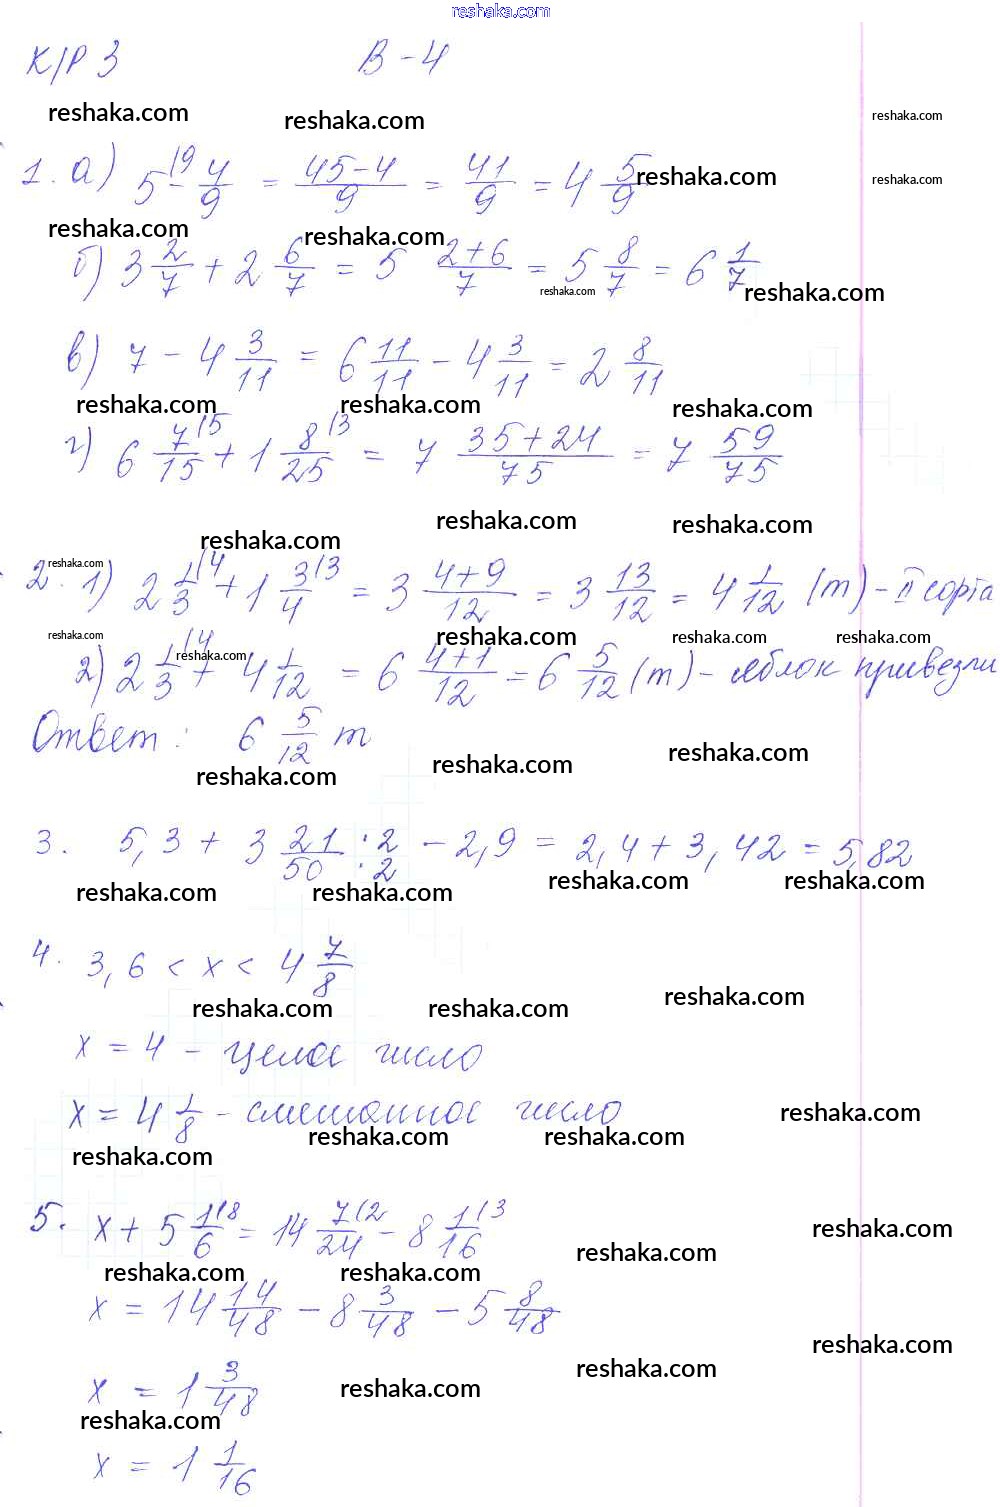 reshaka.com
К/Р 3 В-4
reshaka.com reshaka.com reshaka.com
1. а) 5 - 4/9 = (45-4)/9 = 41/9 = 4 5/9 reshaka.com reshaka.com
reshaka.com reshaka.com
б) 3 2/7 + 2 6/7 = 5 (2+6)/7 = 5 8/7 = 6 1/7
reshaka.com reshaka.com
в) 7 - 4 3/11 = 6 11/11 - 4 3/11 = 2 8/11
reshaka.com reshaka.com reshaka.com
г) 6 7/15 + 1 8/25 = 7 (35+24)/75 = 7 59/75
reshaka.com reshaka.com reshaka.com
reshaka.com
2. 1) 2 1/3 + 1 3/4 = 3 (4+9)/12 = 3 13/12 = 4 1/12 (т) - II сорта
reshaka.com reshaka.com reshaka.com reshaka.com
2) 2 1/3 + 4 1/12 = 6 (4+1)/12 = 6 5/12 (т) - яблок привезли
reshaka.com
Ответ: 6 5/12 т
reshaka.com reshaka.com reshaka.com
3. 5,3 + 3 21/50 ·2/·2 - 2,9 = 2,4 + 3,42 = 5,82
reshaka.com reshaka.com reshaka.com reshaka.com
4. 3,6 < x < 4 7/8
reshaka.com reshaka.com reshaka.com
x = 4 - целое число
x = 4 1/8 - смешанное число reshaka.com
reshaka.com reshaka.com reshaka.com
5. x + 5 1/6 = 14 7/24 - 8 1/16 reshaka.com
reshaka.com reshaka.com reshaka.com
x = 14 14/48 - 8 3/48 - 5 8/48
reshaka.com reshaka.com
x = 1 3/48 reshaka.com
reshaka.com
x = 1 1/16